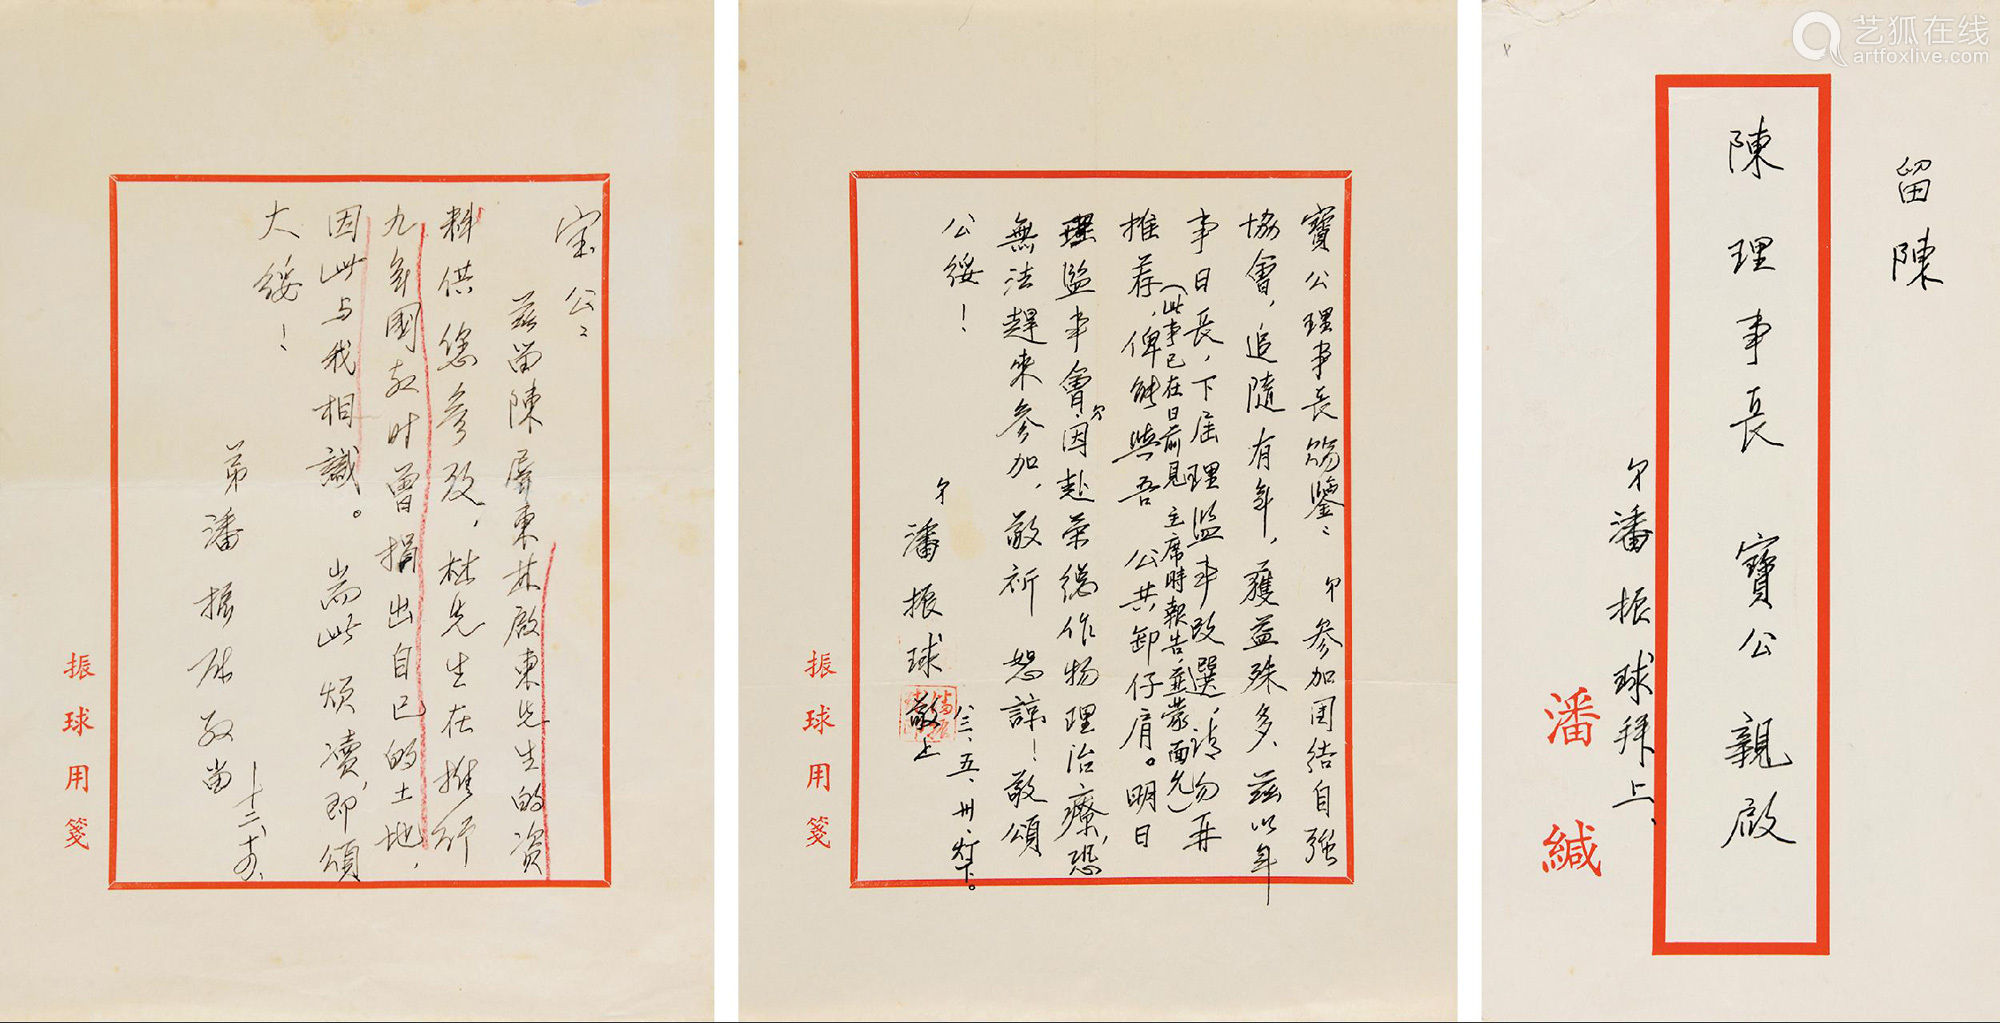 宝公：
茲留陳屏東林啟東先生的資
料供您參攷，林先生在推行
九年國教时曾捐出自己的土地，
因此与我相識。耑此煩瀆，即頌
大綏！
弟潘振球敬留
十二、十五、
振球用箋
寶公理事長賜鑒：弟參加團結自強
協會，追隨有年，獲益殊多、茲以年
事日長，下屆理監事改選，請勿再
（此事已在日前見主席時報告，並蒙面允）
推荐，俾能與吾 公共卸仔肩。明日
理監事會，弟因赴榮總作物理治療，恐
無法趕來參加，敬祈 恕諒！敬頌
公綏！
弟潘振球敬上
八三、五、卅、灯下。
振球用箋
留陳
陳理事長 寶公親啟
弟潘振球拜上、
潘緘
艺狐在线
artfoxlive.com